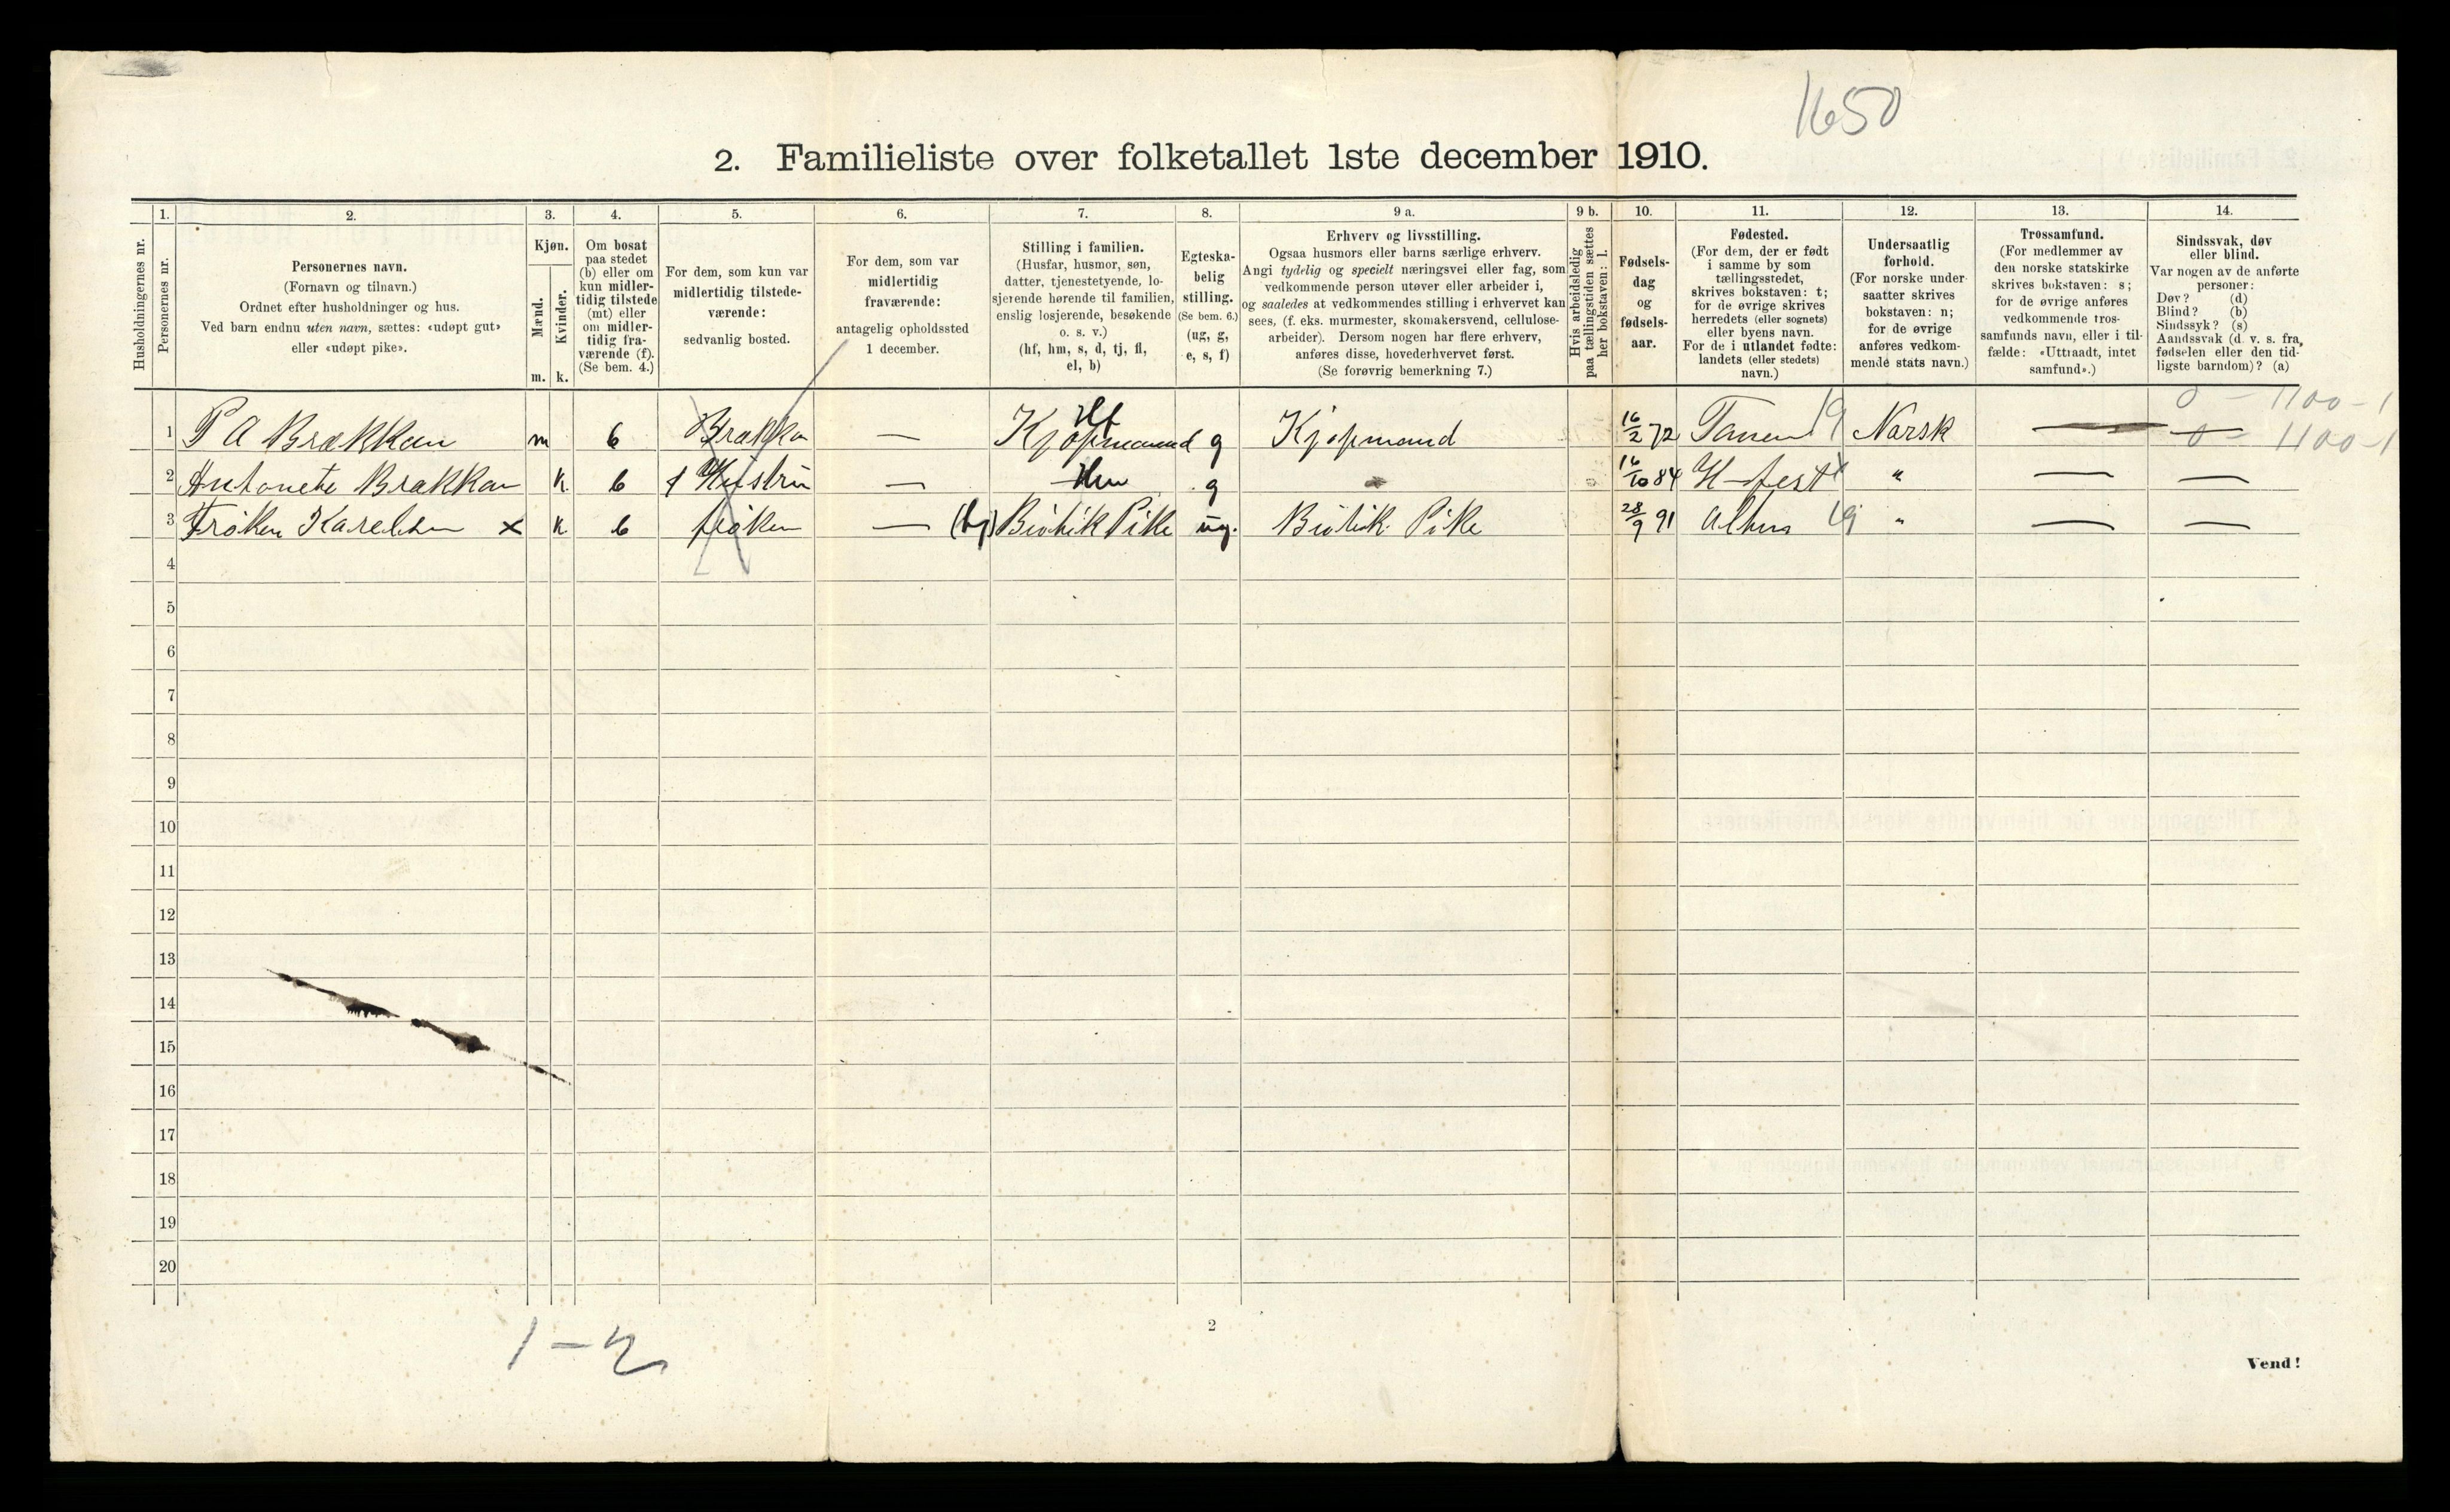 1650
2. Familieliste over folketallet 1ste december 1910.
Husholdningernes nr.
1.
Personernes nr.
2.
Personernes navn.
(Fornavn og tilnavn.)
Ordnet efter husholdninger og hus.
Ved barn endnu uten navn, sættes: «udøpt gut»
eller «udøpt pike».
3.
Kjøn.
Mænd.
Kvinder.
m. k.
4.
Om bosat
paa stedet
(b) eller om
kun midler-
tidig tilstede
(mt) eller
om midler-
tidig fra-
værende (f).
(Se bem. 4.)
5.
For dem, som kun var
midlertidig tilstede-
værende:
sedvanlig bosted.
6.
For dem, som var
midlertidig
fraværende:
antagelig opholdssted
1 december.
7.
Stilling i familien.
(Husfar, husmor, søn,
datter, tjenestetyende, lo-
sjerende hørende til familien,
enslig losjerende, besøkende
o. s. v.)
(hf, hm, s, d, tj, fl,
el, b)
8.
Egteska-
belig
stilling.
(Se bem. 6.)
(ug, g,
e, s, f)
9 a.
Erhverv og livsstilling.
Ogsaa husmors eller barns særlige erhverv.
Angi tydelig og specielt næringsvei eller fag, som
vedkommende person utøver eller arbeider i,
og saaledes at vedkommendes stilling i erhvervet kan
sees, (f. eks. murmester, skomakersvend, cellulose-
arbeider). Dersom nogen har flere erhverv,
anføres disse, hovederhvervet først.
(Se forøvrig bemerkning 7.)
9 b.
Hvis arbeidsledig
paa tællingstiden sættes
her bokstaven: l.
10.
Fødsels-
dag
og
fødsels-
aar.
11.
Fødested.
(For dem, der er født
i samme by som
tællingsstedet,
skrives bokstaven: t;
for de øvrige skrives
herredets (eller sognets)
eller byens navn.
For de i utlandet fødte:
landets (eller stedets)
navn.)
12.
Undersaatlig
forhold.
(For norske under-
saatter skrives
bokstaven: n;
for de øvrige
anføres vedkom-
mende stats navn.)
13.
Trossamfund.
(For medlemmer av
den norske statskirke
skrives bokstaven: s;
for de øvrige anføres
vedkommende tros-
samfunds navn, eller i til-
fælde: «Uttraadt, intet
samfund».)
14.
Sindssvak, døv
eller blind.
Var nogen av de anførte
personer:
Døv? (d)
Blind? (b)
Sindssyk? (s)
Aandssvak (d. v. s. fra
fødselen eller den tid-
ligste barndom)? (a)
0 - 1100 - 1
1 P A Brækkan m 6 Brækka — Hf Kjøpmand g Kjøpmand 16/2 72 Tanen 19 Norsk — — 0 - 1100-1
2 Antonete Brækkan k. 6 Hustru — Hm g 16/10 84 H-fest " — —
3 Frøken Karelsen x k 6 frøken — (tj) Biutik Pike ug. Biutik Pike 28/9 91 19 " — —
4
5
6
7
8
9
10
11
12
13
14
15
16
17
18
19
20
1-2
2
Vend!